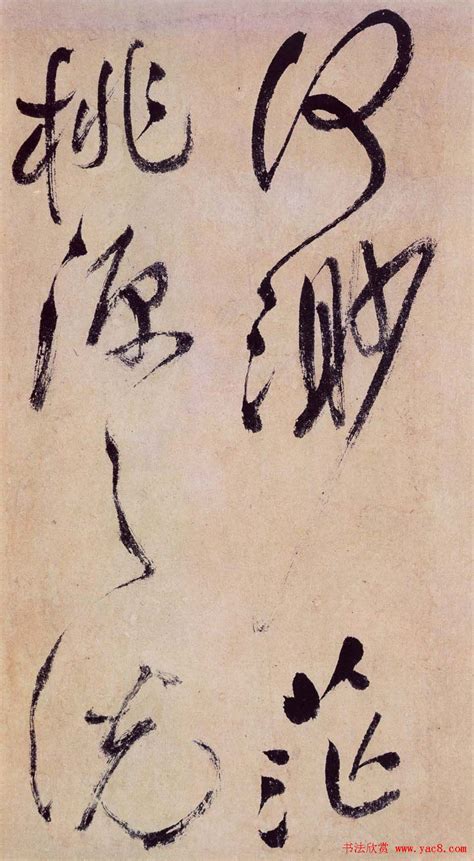 何渺茫
桃源之說
书法欣赏 www.yac8.com